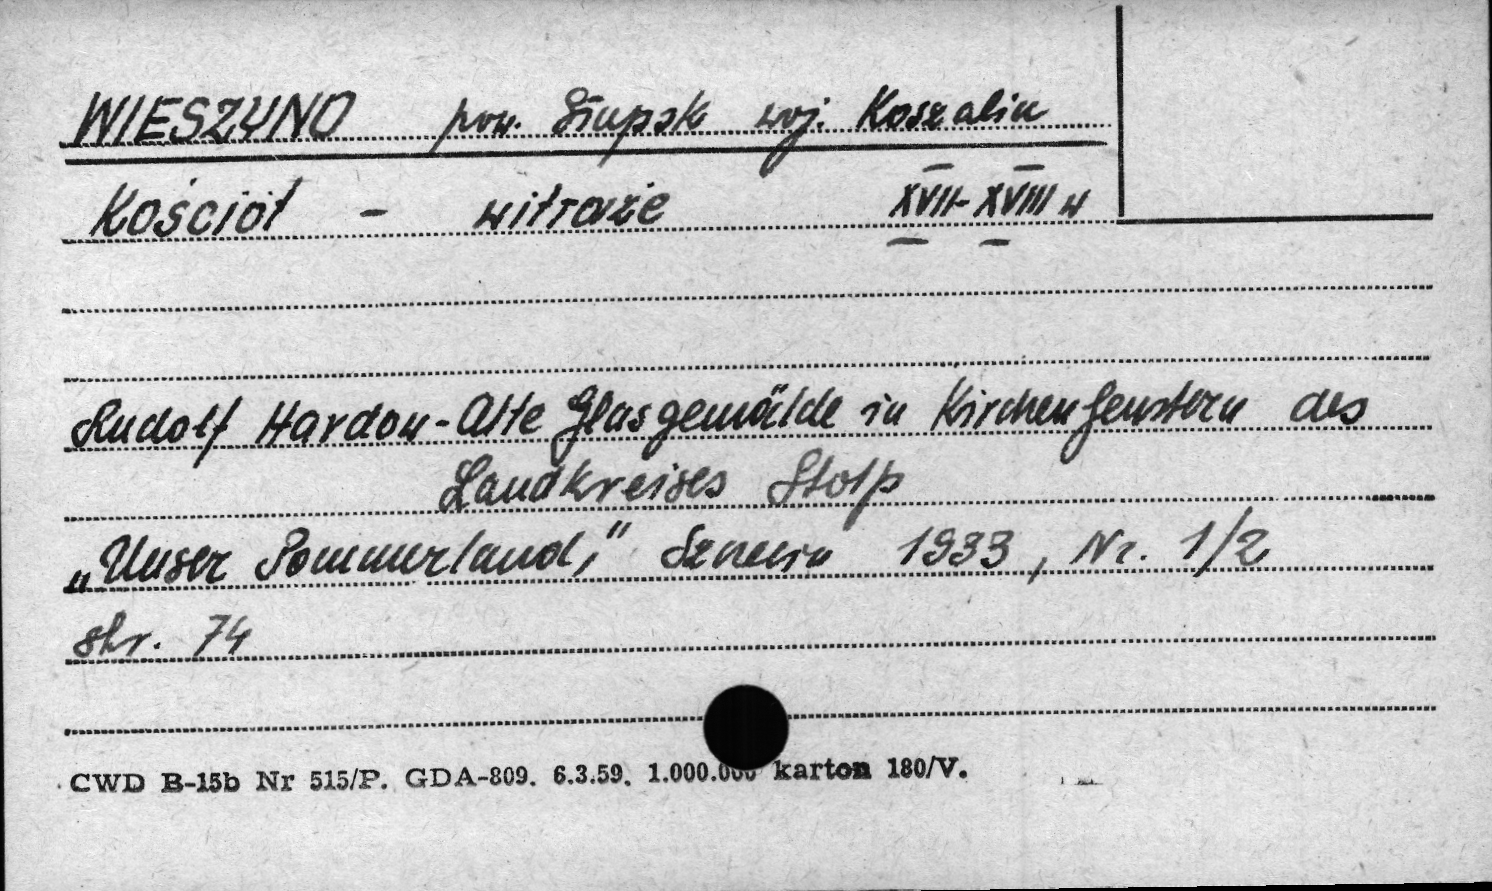 WIESZYNO pow. Słupsk woj. Koszalin
Kościół - witraże XVII-XVIII w
Rudolf Hardow - Alte Glasgemälde in Kirchenfenstern des
Landkreises Stolp
„Unser Pommerland," Szczecin 1933, Nr. 1/2
str. 74
CWD B-15b Nr 515/P. GDA-809. 6.3.59. 1.000.000 karton 180/V.